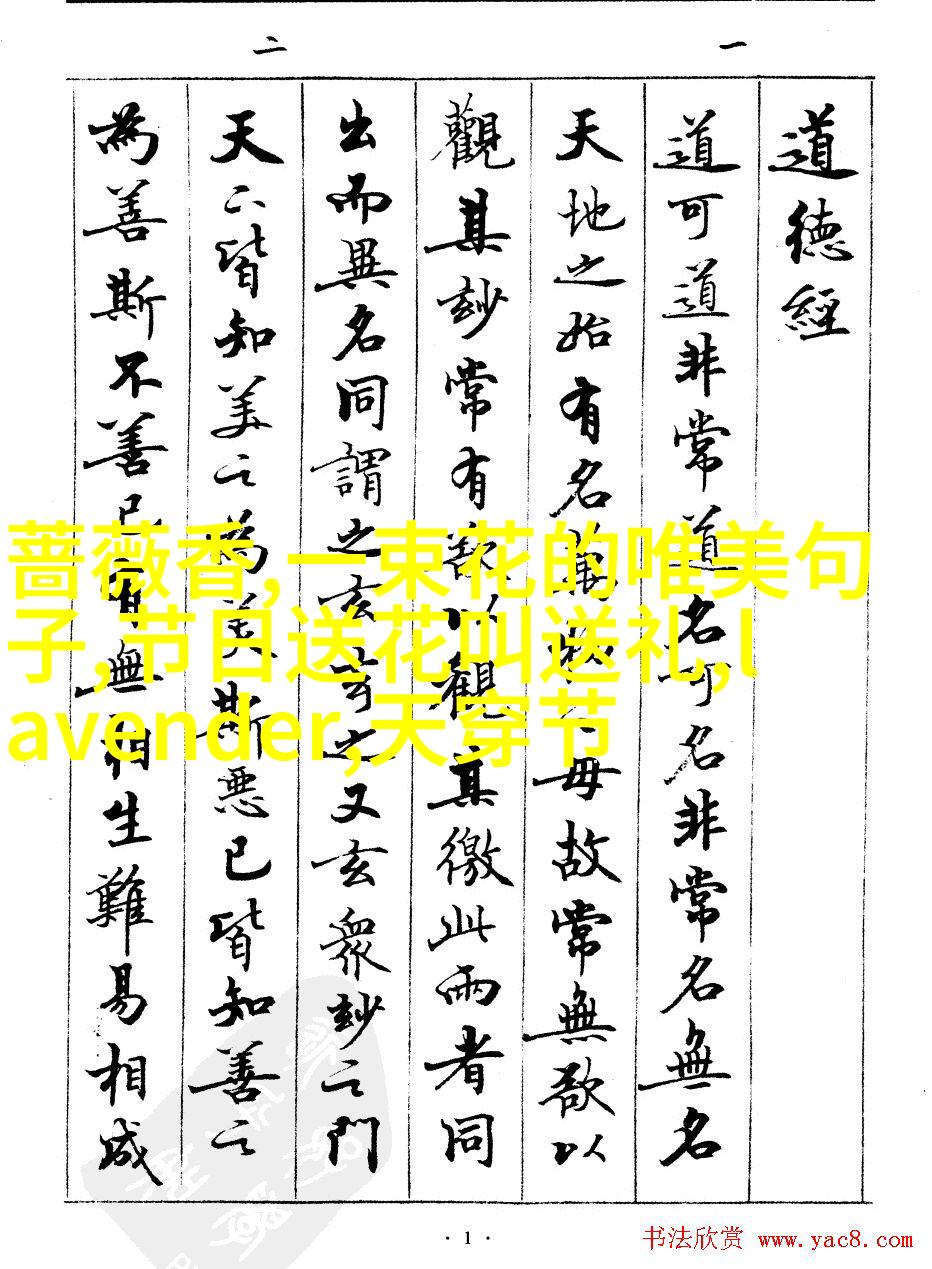 一
二
道德經
道可道非常道名可名非常名無名
天地之始有名萬物之母故常無欲以
觀其玅常有欲以觀其徼此兩者同
出而異名同謂之玄玄之又玄衆玅之門
天下皆知美之為美斯惡已皆知善之
為善斯不善已有無相生難易相成
蔷薇香,一束花的唯美句
子,节日送花叫送礼,l
avender,天穿节
· 1 ·
书法欣赏 www.yac8.com